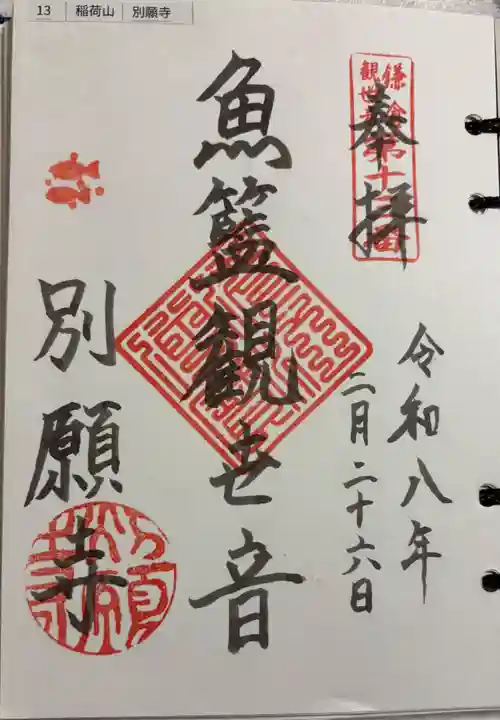 13 稲荷山 別願寺
奉拝
鎌倉
觀世音第十三番
令和八年
二月二十六日
魚籃観世音
別願寺
別願寺